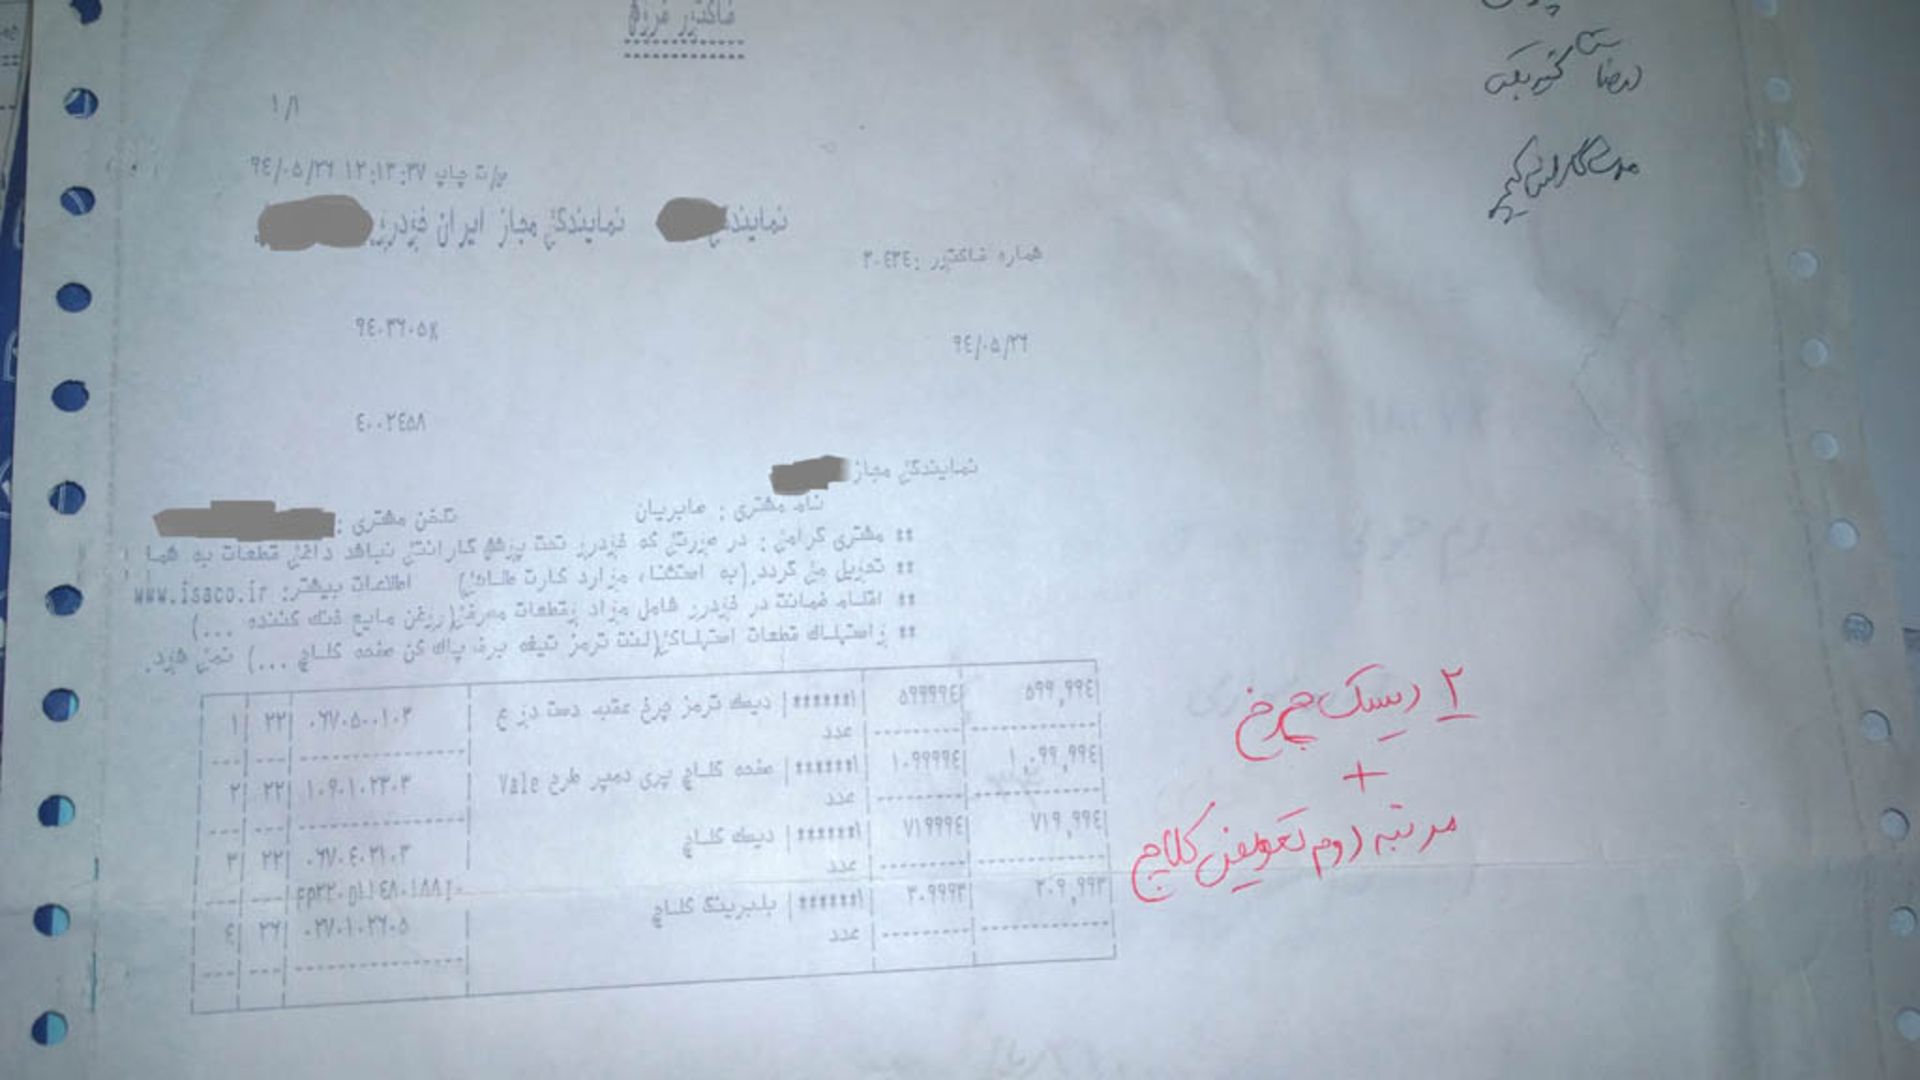 فاکتور فروش
۱/۱
ت چاپ ۱۲:۱۳:۳۷ ۹۴/۰۵/۲۶
نمایندگی نمایندگی مجاز ایران خودرو
شماره فاکتور : ۳۰۴۳۴
۹۴۰۳۶۰۵
۹۴/۰۵/۲۶
۴۰۰۲۴۵۸
نمایندگی مجاز
نام مشتری : صابریان تلفن مشتری :
** مشتری گرامی : در صورتی که خودرو تحت پوشش گارانتی نباشد داغی قطعات به شما
** تحویل می گردد.(به استثناء موارد کارت طلائی) اطلاعات بیشتر: www.isaco.ir
** اقلام ضمانت در خودرو شامل مواد وقطعات مصرفی(روغن مایع خنک کننده ...)
** واستهلاک قطعات استهلاکی(لنت ترمز تیغه برف پاک کن صفحه کلاچ ...) نمی شود.
۱ ۲۲ ۰۶۷۰۵۰۰۱۰۳ دیسک ترمز چرخ عقب ******| ۵۹۹۹۹۴ ۵۹۹,۹۹۴
عدد
۲ ۲۲ ۱۰۹۰۱۰۲۳۰۳ صفحه کلاچ پری دمپر طرح Vale ******| ۱۰۹۹۹۹۴ ۱,۰۹۹,۹۹۴
عدد
۳ ۲۲ ۰۶۷۰۴۰۲۱۰۳ دیسک کلاچ ******| ۷۱۹۹۹۴ ۷۱۹,۹۹۴
عدد
۴ ۲۶ ۰۲۷۰۱۰۲۶۰۵ بلبرینگ کلاچ ******| ۳۰۹۹۹۳ ۳۰۹,۹۹۳
عدد
۲ دیسک چرخ
+
مرتبه دوم تعویض کلاچ